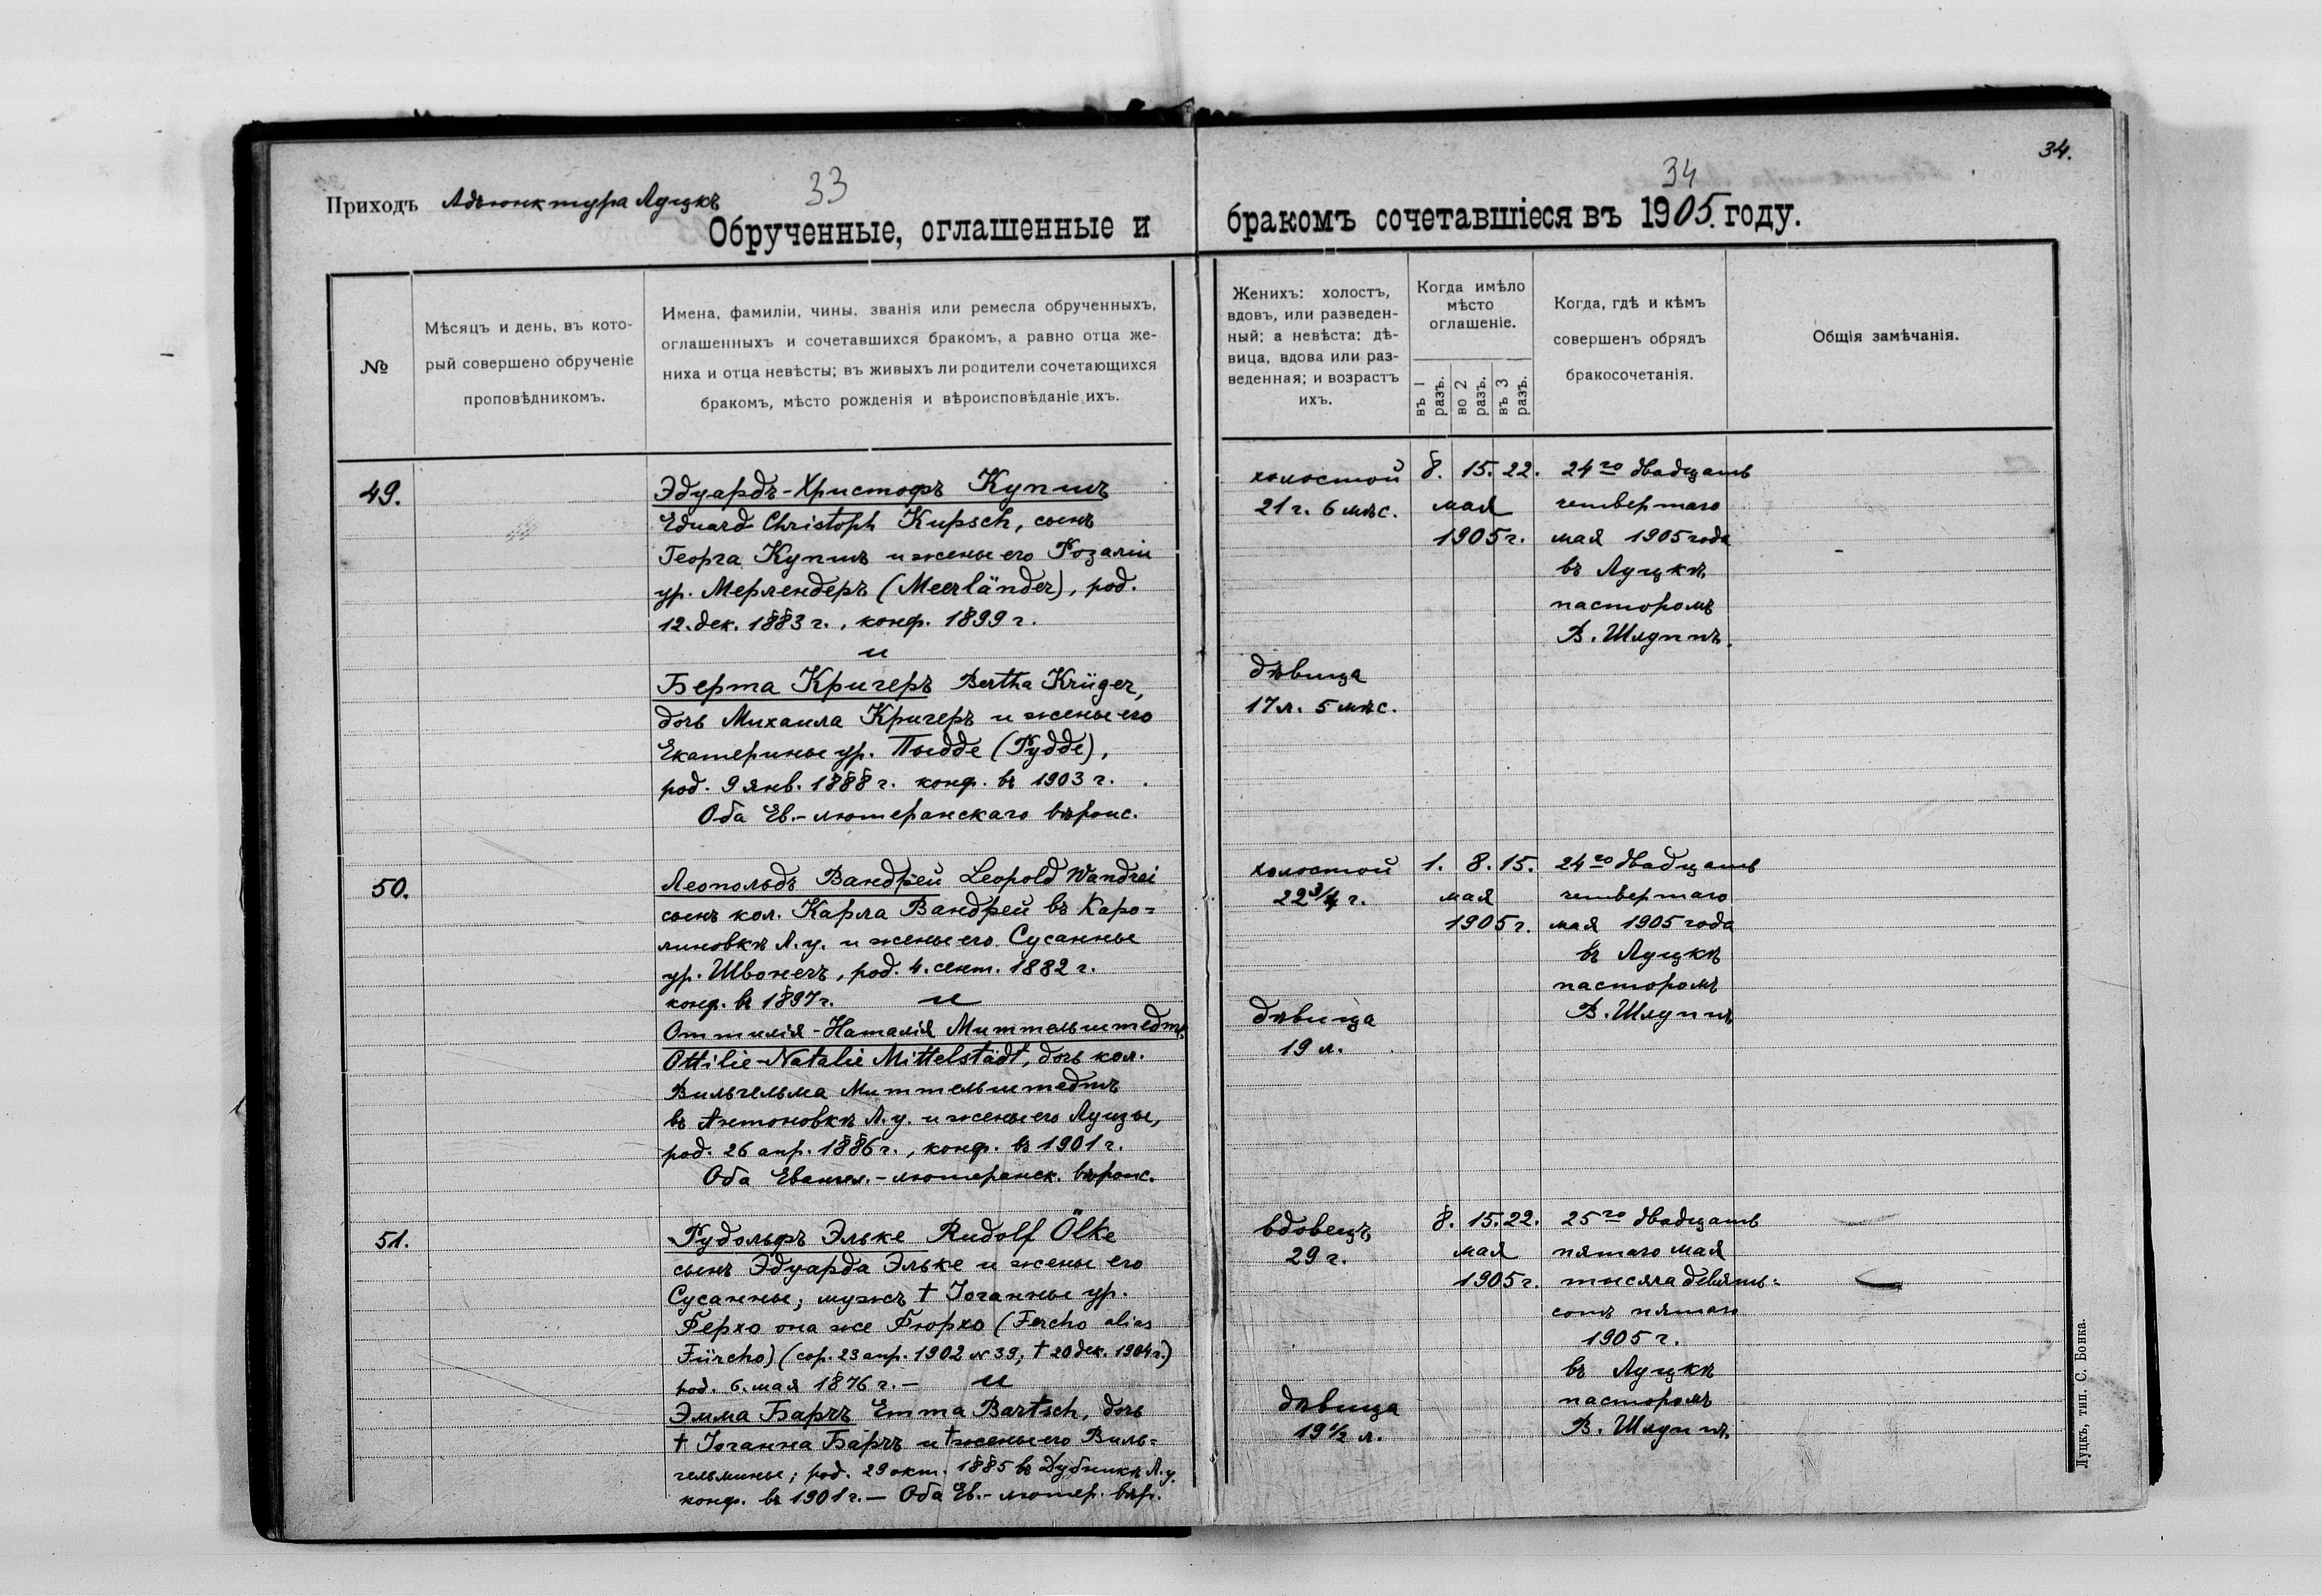 33
34
34.
Приходъ Адъюнктура Луцкъ
Обрученные, оглашенные и бракомъ сочетавшіеся въ 1905. году.
№
Мѣсяцъ и день, въ кото-
рый совершено обрученіе
проповѣдникомъ.
Имена, фамиліи, чины, званія или ремесла обрученныхъ,
оглашенныхъ и сочетавшихся бракомъ, а равно отца же-
ниха и отца невѣсты; въ живыхъ ли родители сочетающихся
бракомъ, мѣсто рожденія и вѣроисповѣданіе ихъ.
Женихъ: холостъ,
вдовъ, или разведен-
ный; а невѣста: дѣ-
вица, вдова или раз-
веденная; и возрастъ
ихъ.
Когда имѣло
мѣсто
оглашеніе.
въ 1 разъ.
во 2 разъ.
въ 3 разъ.
Когда, гдѣ и кѣмъ
совершенъ обрядъ
бракосочетанія.
Общія замѣчанія.
49.
Эдуардъ-Христофъ Купшъ
Eduard Christoph Kupsch, сынъ
Георга Купшъ и жены его Розаліи
ур. Мерлендеръ (Meerländer), род.
12. дек. 1883 г., конф. 1899 г.
и
Берта Кригеръ Bertha Krüger,
дочь Михаила Кригеръ и жены его
Екатерины ур. Пыдде (Рудде),
род. 9 янв. 1888 г. конф. въ 1903 г.
Оба Ев.-лютеранскаго вѣроис.
холостой
21 г. 6 мѣс.
дѣвица
17 л. 5 мѣс.
8. 15. 22.
мая
1905 г.
24го двадцать
четвертаго
мая 1905 года
въ Луцкѣ
пасторомъ
В. Шлуппъ.
50.
Леопольдъ Вандрей Leopold Wandrei
сынъ кол. Карла Вандрей въ Каро=
линовкѣ Л. у. и жены его Сусанны
ур. Швонечъ, род. 4. сент. 1882 г.
конф. въ 1897 г. и
Оттилія-Наталія Миттельштедтъ
Ottilie-Natalie Mittelstädt, дочь кол.
Вильгельма Миттельштедтъ
въ Антоновкѣ Л. у. и жены его Луизы,
род. 26 апр. 1886 г., конф. въ 1901 г.
Оба Евангел.-лютеранск. вѣроис.
холостой
22 3/4 г.
дѣвица
19 л.
1. 8. 15.
мая
1905 г.
24го двадцать
четвертаго
мая 1905 года
въ Луцкѣ
пасторомъ
В. Шлуппъ
51.
Рудольфъ Эльке Rudolf Ölke
сынъ Эдуарда Эльке и жены его
Сусанны; мужъ † Іоганны ур.
Ферхо она же Фюрхо (Fercho alias
Fürcho) (сор. 23 апр. 1902 № 39, † 20 дек. 1904 г.)
род. 6. мая 1876 г. — и
Эмма Барчъ Emma Bartsch, дочь
† Іоганна Барчъ и † жены его Виль=
гельмины; род. 29 окт. 1885 въ Дубникѣ Л. у.
конф. въ 1901 г. — Оба Ев.-лютер. вѣр.
вдовецъ
29 г.
дѣвица
19 1/2 л.
8. 15. 22.
мая
1905 г.
25го двадцать
пятаго мая
тысяча девять=
сотъ пятаго
1905 г.
въ Луцкѣ
пасторомъ
В. Шлуппъ
Луцкъ, тип. С. Бонка.